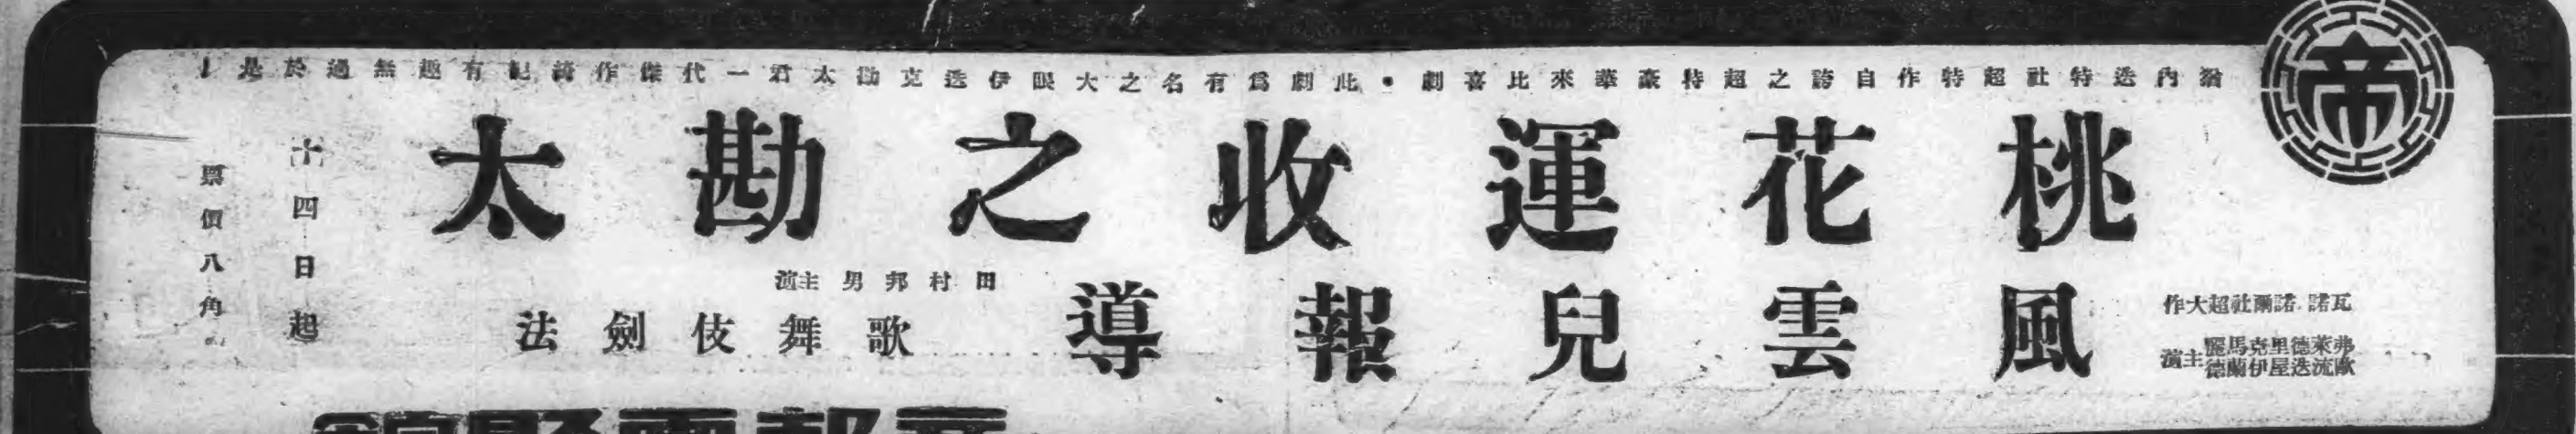 帝
內迭特社超特作自誇之超特豪華來比喜劇●此劇為有名之大眼伊迭克勘太君一代傑作綺記有趣無過於是！
桃花運收之勘太
瓦諾 諾爾社超大作
弗萊德里克馬麗
歐流迭屋伊蘭德
主演
風雲兒報導
田村邦男主演
歌舞伎劍法
十四日起
票價八角